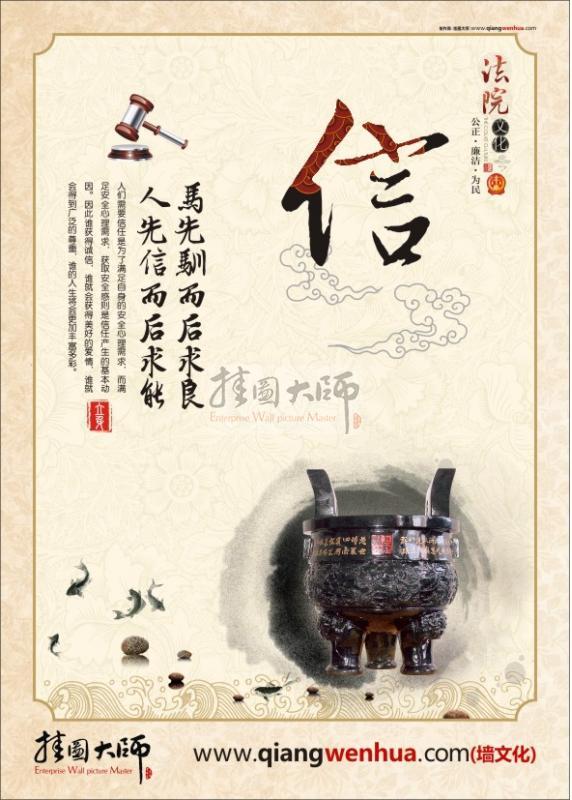 制作商:挂图大师:www.qiangwenhua.com
法院
文化
公正·廉洁·为民
信
馬先馴而后求良
人先信而后求能
人们需要信任是为了满足自身的安全心理需求，而满
足安全心理需求，获取安全感则是信任产生的基本动
因。因此谁获得诚信，谁就会获得美好的爱情，谁就
会得到广泛的尊重，谁的人生将会更加丰富多彩。
挂圖大师
Enterprise Wall picture Master
挂圖大师
Enterprise Wall picture Master
www.qiangwenhua.com(墙文化)